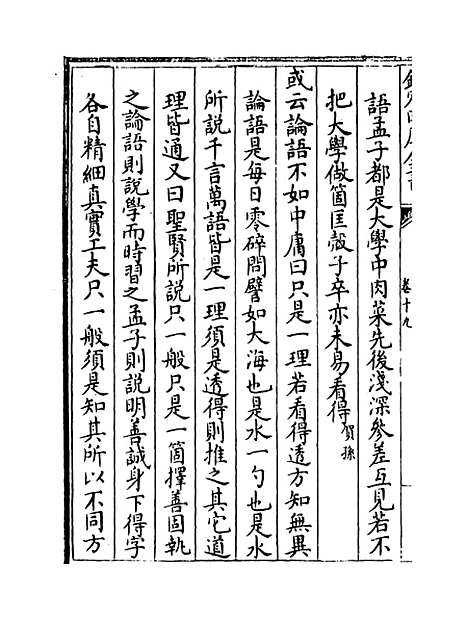 欽定四庫全書
卷十九
語孟子都是大學中肉菜先後淺深參差互見若不
把大學做箇匡殼子卒亦未易看得賀孫
或云論語不如中庸曰只是一理若看得透方知無異
論語是每日零碎問譬如大海也是水一勺也是水
所說千言萬語皆是一理須是透得則推之其它道
理皆通又曰聖賢所說只一般只是一箇擇善固執
之論語則說學而時習之孟子則說明善誠身下得字
各自精細真實工夫只一般須是知其所以不同方